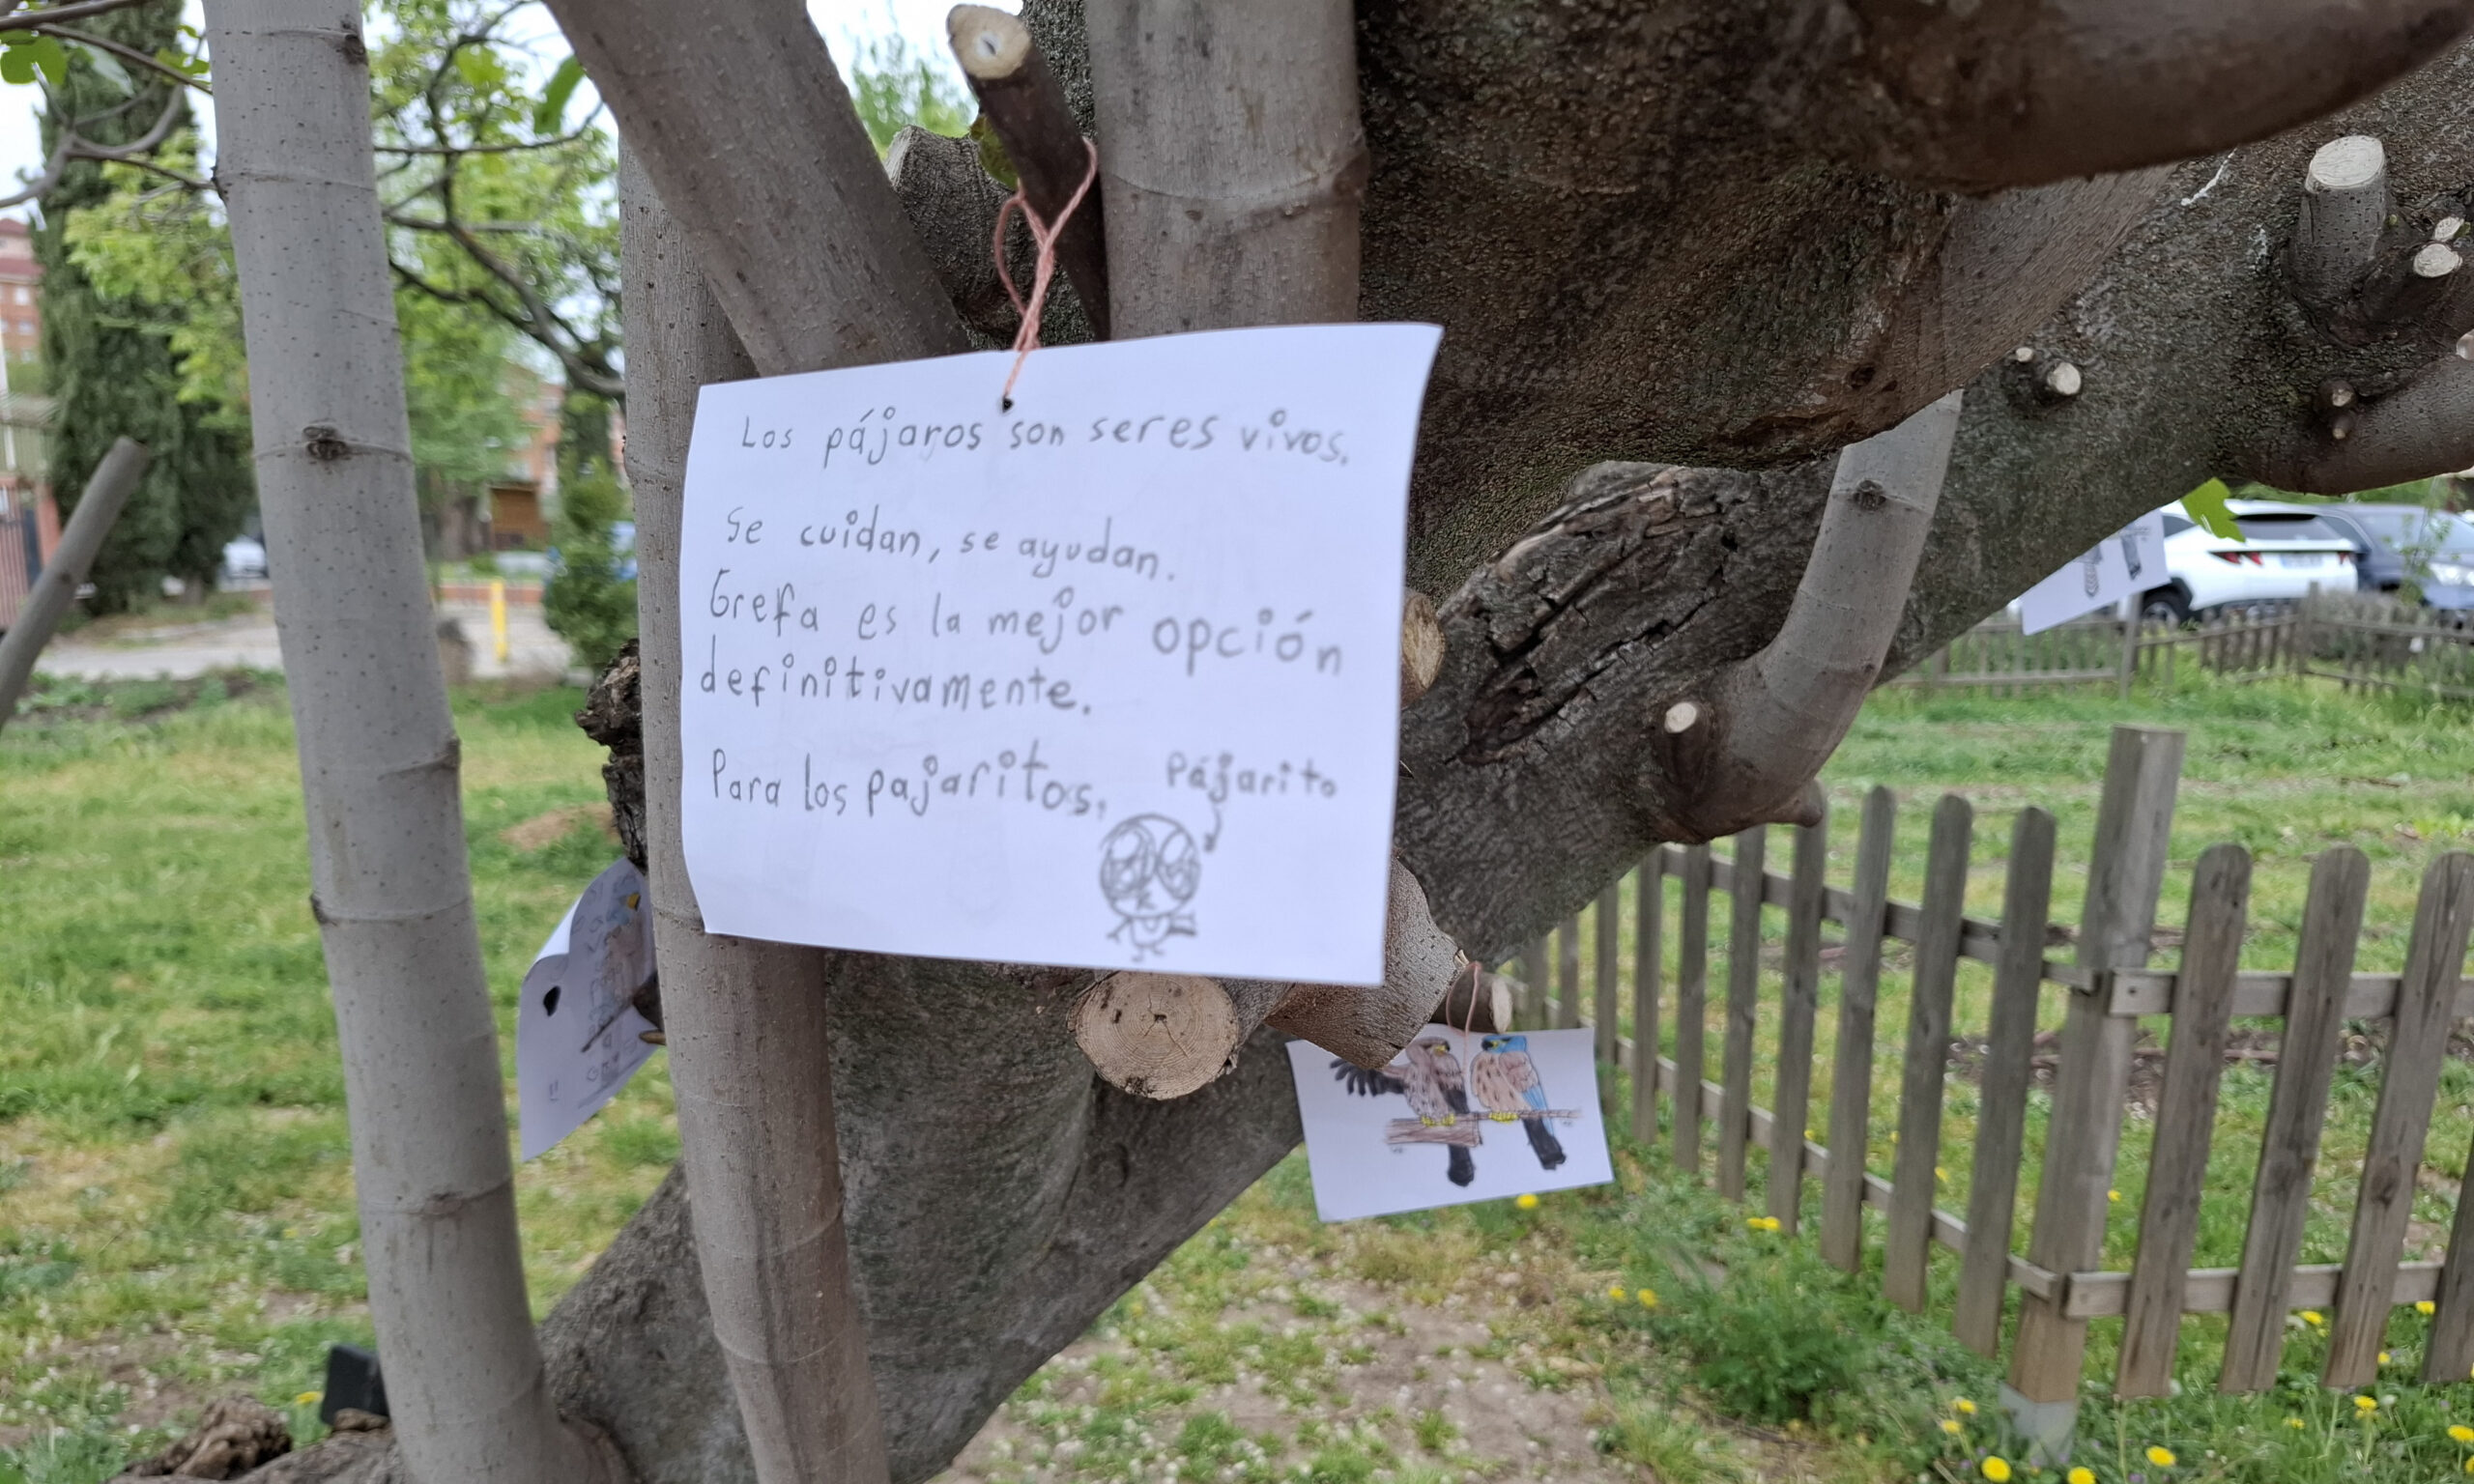 Los pájaros son seres vivos.
Se cuidan, se ayudan.
Grefa es la mejor opción
definitivamente.
Para los pajaritos,
Pájarito